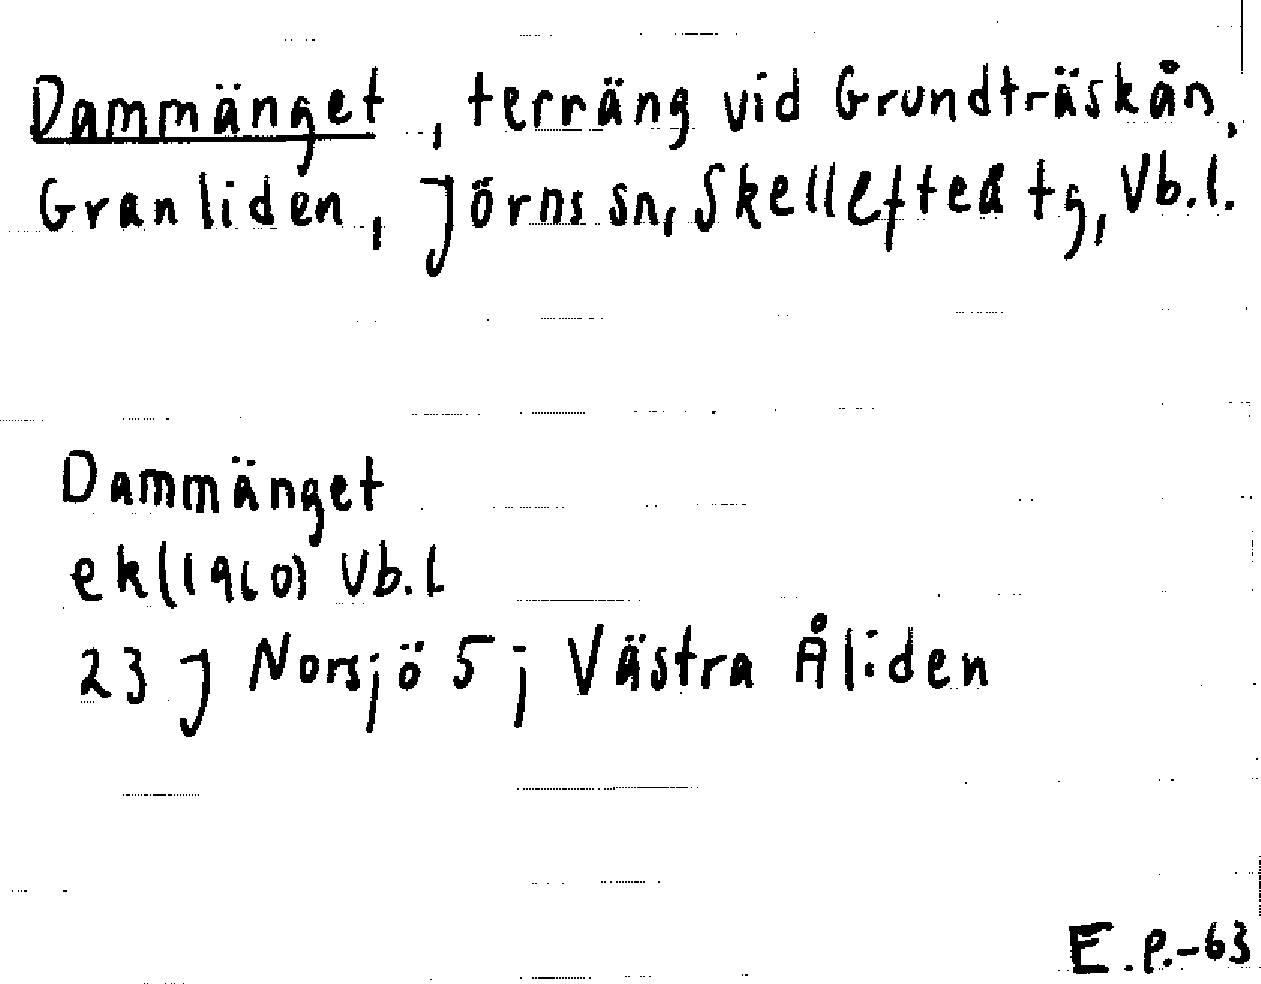 Dammänget, terräng vid Grundträskån,
Granliden, Jörns sn, Skellefteå tg, Vb.l.
Dammänget
ek (1960) Vb.l
23 J Norsjö 5 j Västra Åliden
E.P.-63